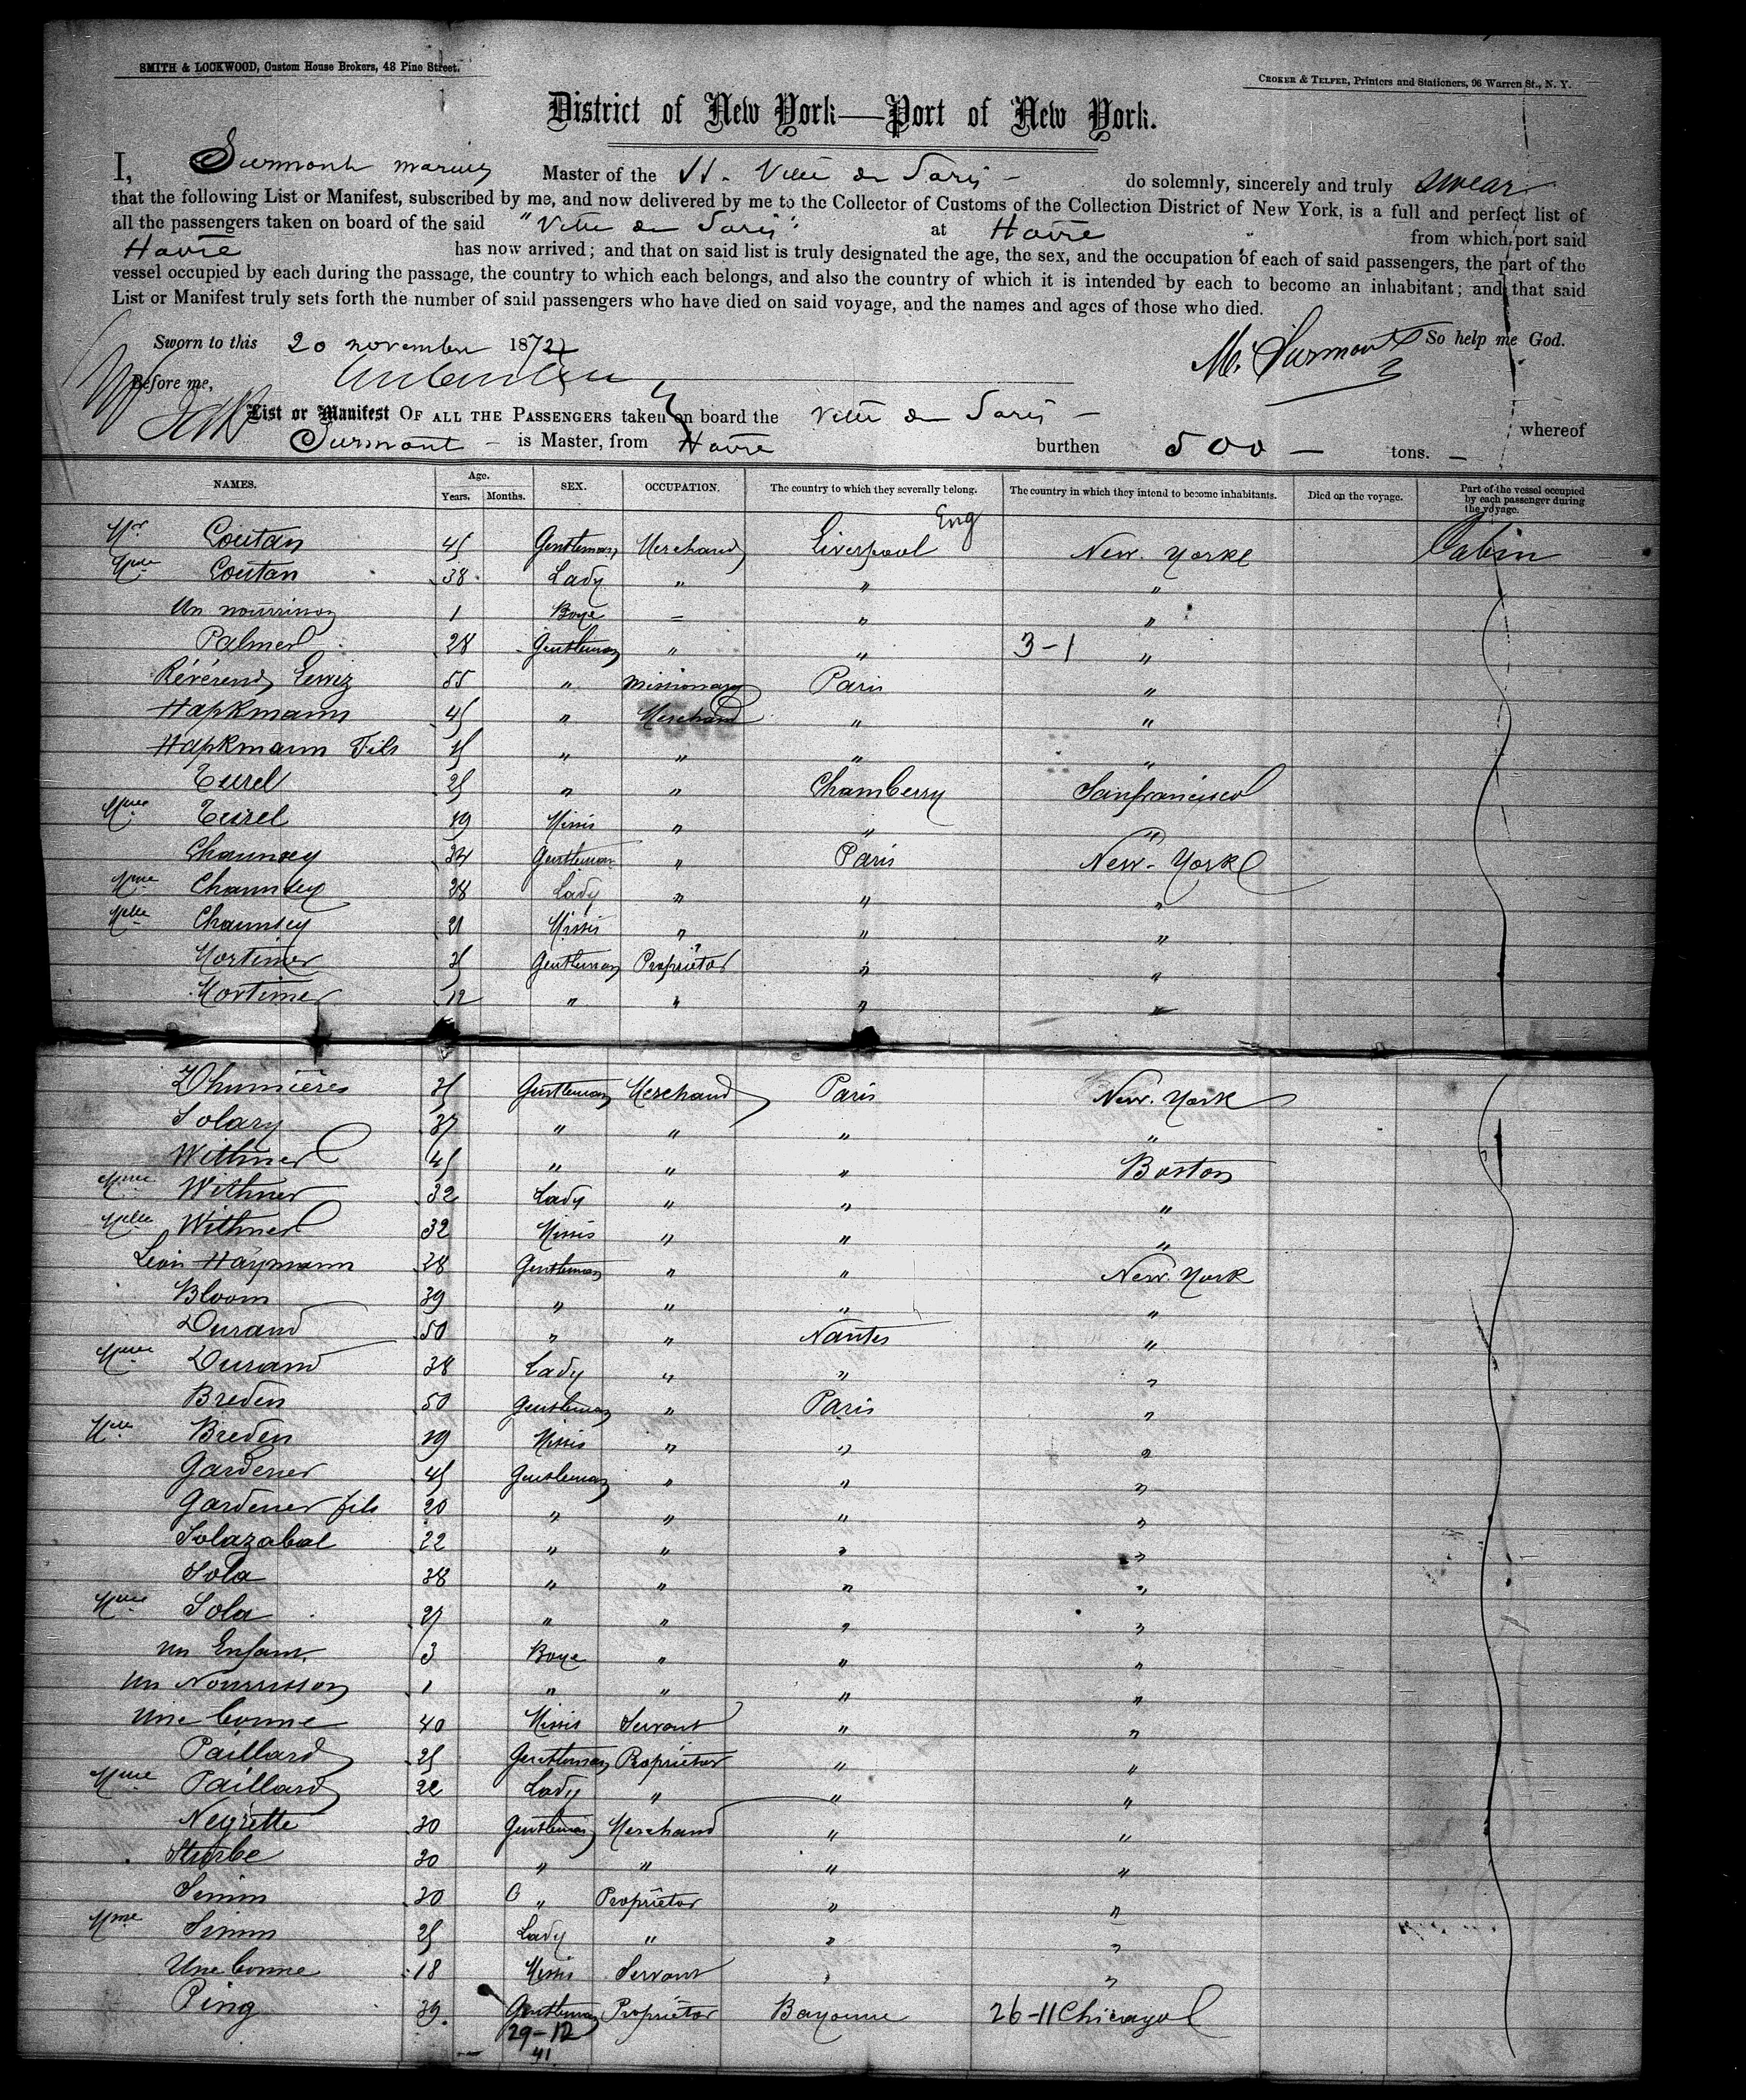 SMITH & LOCKWOOD, Custom House Brokers, 48 Pine Street.
CROKER & TELFER, Printers and Stationers, 96 Warren St., N. Y.
District of New York—Port of New York.
I, Surmont Marius Master of the St. Ville de Paris — do solemnly, sincerely and truly swear
that the following List or Manifest, subscribed by me, and now delivered by me to the Collector of Customs of the Collection District of New York, is a full and perfect list of
all the passengers taken on board of the said "Ville de Paris" at Havre from which port said
Havre has now arrived; and that on said list is truly designated the age, the sex, and the occupation of each of said passengers, the part of the
vessel occupied by each during the passage, the country to which each belongs, and also the country of which it is intended by each to become an inhabitant; and that said
List or Manifest truly sets forth the number of said passengers who have died on said voyage, and the names and ages of those who died.
Sworn to this 20 november 1872 M. Surmont So help me God.
Before me,
List or Manifest OF ALL THE PASSENGERS taken on board the Ville de Paris — whereof
Surmont — is Master, from Havre burthen 500 — tons. —
NAMES. Age. Years. Months. SEX. OCCUPATION. The country to which they severally belong. The country in which they intend to become inhabitants. Died on the voyage. Part of the vessel occupied by each passenger during the voyage.
Mr Coutan 45 Gentleman Merchand Liverpool Eng New. Yorke Cabin
Mme Coutan 38 Lady " " "
Un nourrison 1 Boye = " "
Palmer 28 Gentleman " " 3-1 "
Révérend Lewiz 55 " missionary Paris "
Hapkmann 45 " Merchand " "
Hapkmann Fils " " " "
Turel 25 " " Chamberry Sanfrancisco
Mme Turel 19 Missis " " "
Chaunsey 34 Gentleman " Paris New-Yorke
Mme Chaunsey 28 Lady " " "
Melle Chaunsey 21 Missis " " "
Mortimer 35 Gentleman Propriétor " "
Mortimer 12 " " " "
Dhumières 35 Gentleman Merchand Paris New. York
Solary 37 " " " "
Withner 45 " " " Boston
Mme Withner 32 Lady " " "
Melle Withner 32 Missis " " "
Léon Haymann 28 Gentleman " " New. York
Bloom 39 " " " "
Durand 50 " " Nantes "
Mme Durand 38 Lady " " "
Breden 50 Gentleman " Paris "
Melle Breden 19 Missis " " "
Gardener 45 Gentleman " " "
Gardener fils 20 " " " "
Solazabal 22 " " " "
Sola 38 " " " "
Mme Sola 27 " " " "
Un Enfant 3 Boye " " "
Un Nourrisson 1 " " " "
Une bonne 40 Missis Servant " "
Paillard 25 Gentleman Propriétor " "
Mme Paillard 22 Lady " " "
Neyrette 30 Gentleman Merchand " "
30 " " " "
Simm 30 G " Propriétor " "
Mme Simm 25 Lady " " "
Une bonne 18 Missis Servant " "
Ping 39. Gentleman Propriétor Bayonne 26-11 Chicago
29-12
41